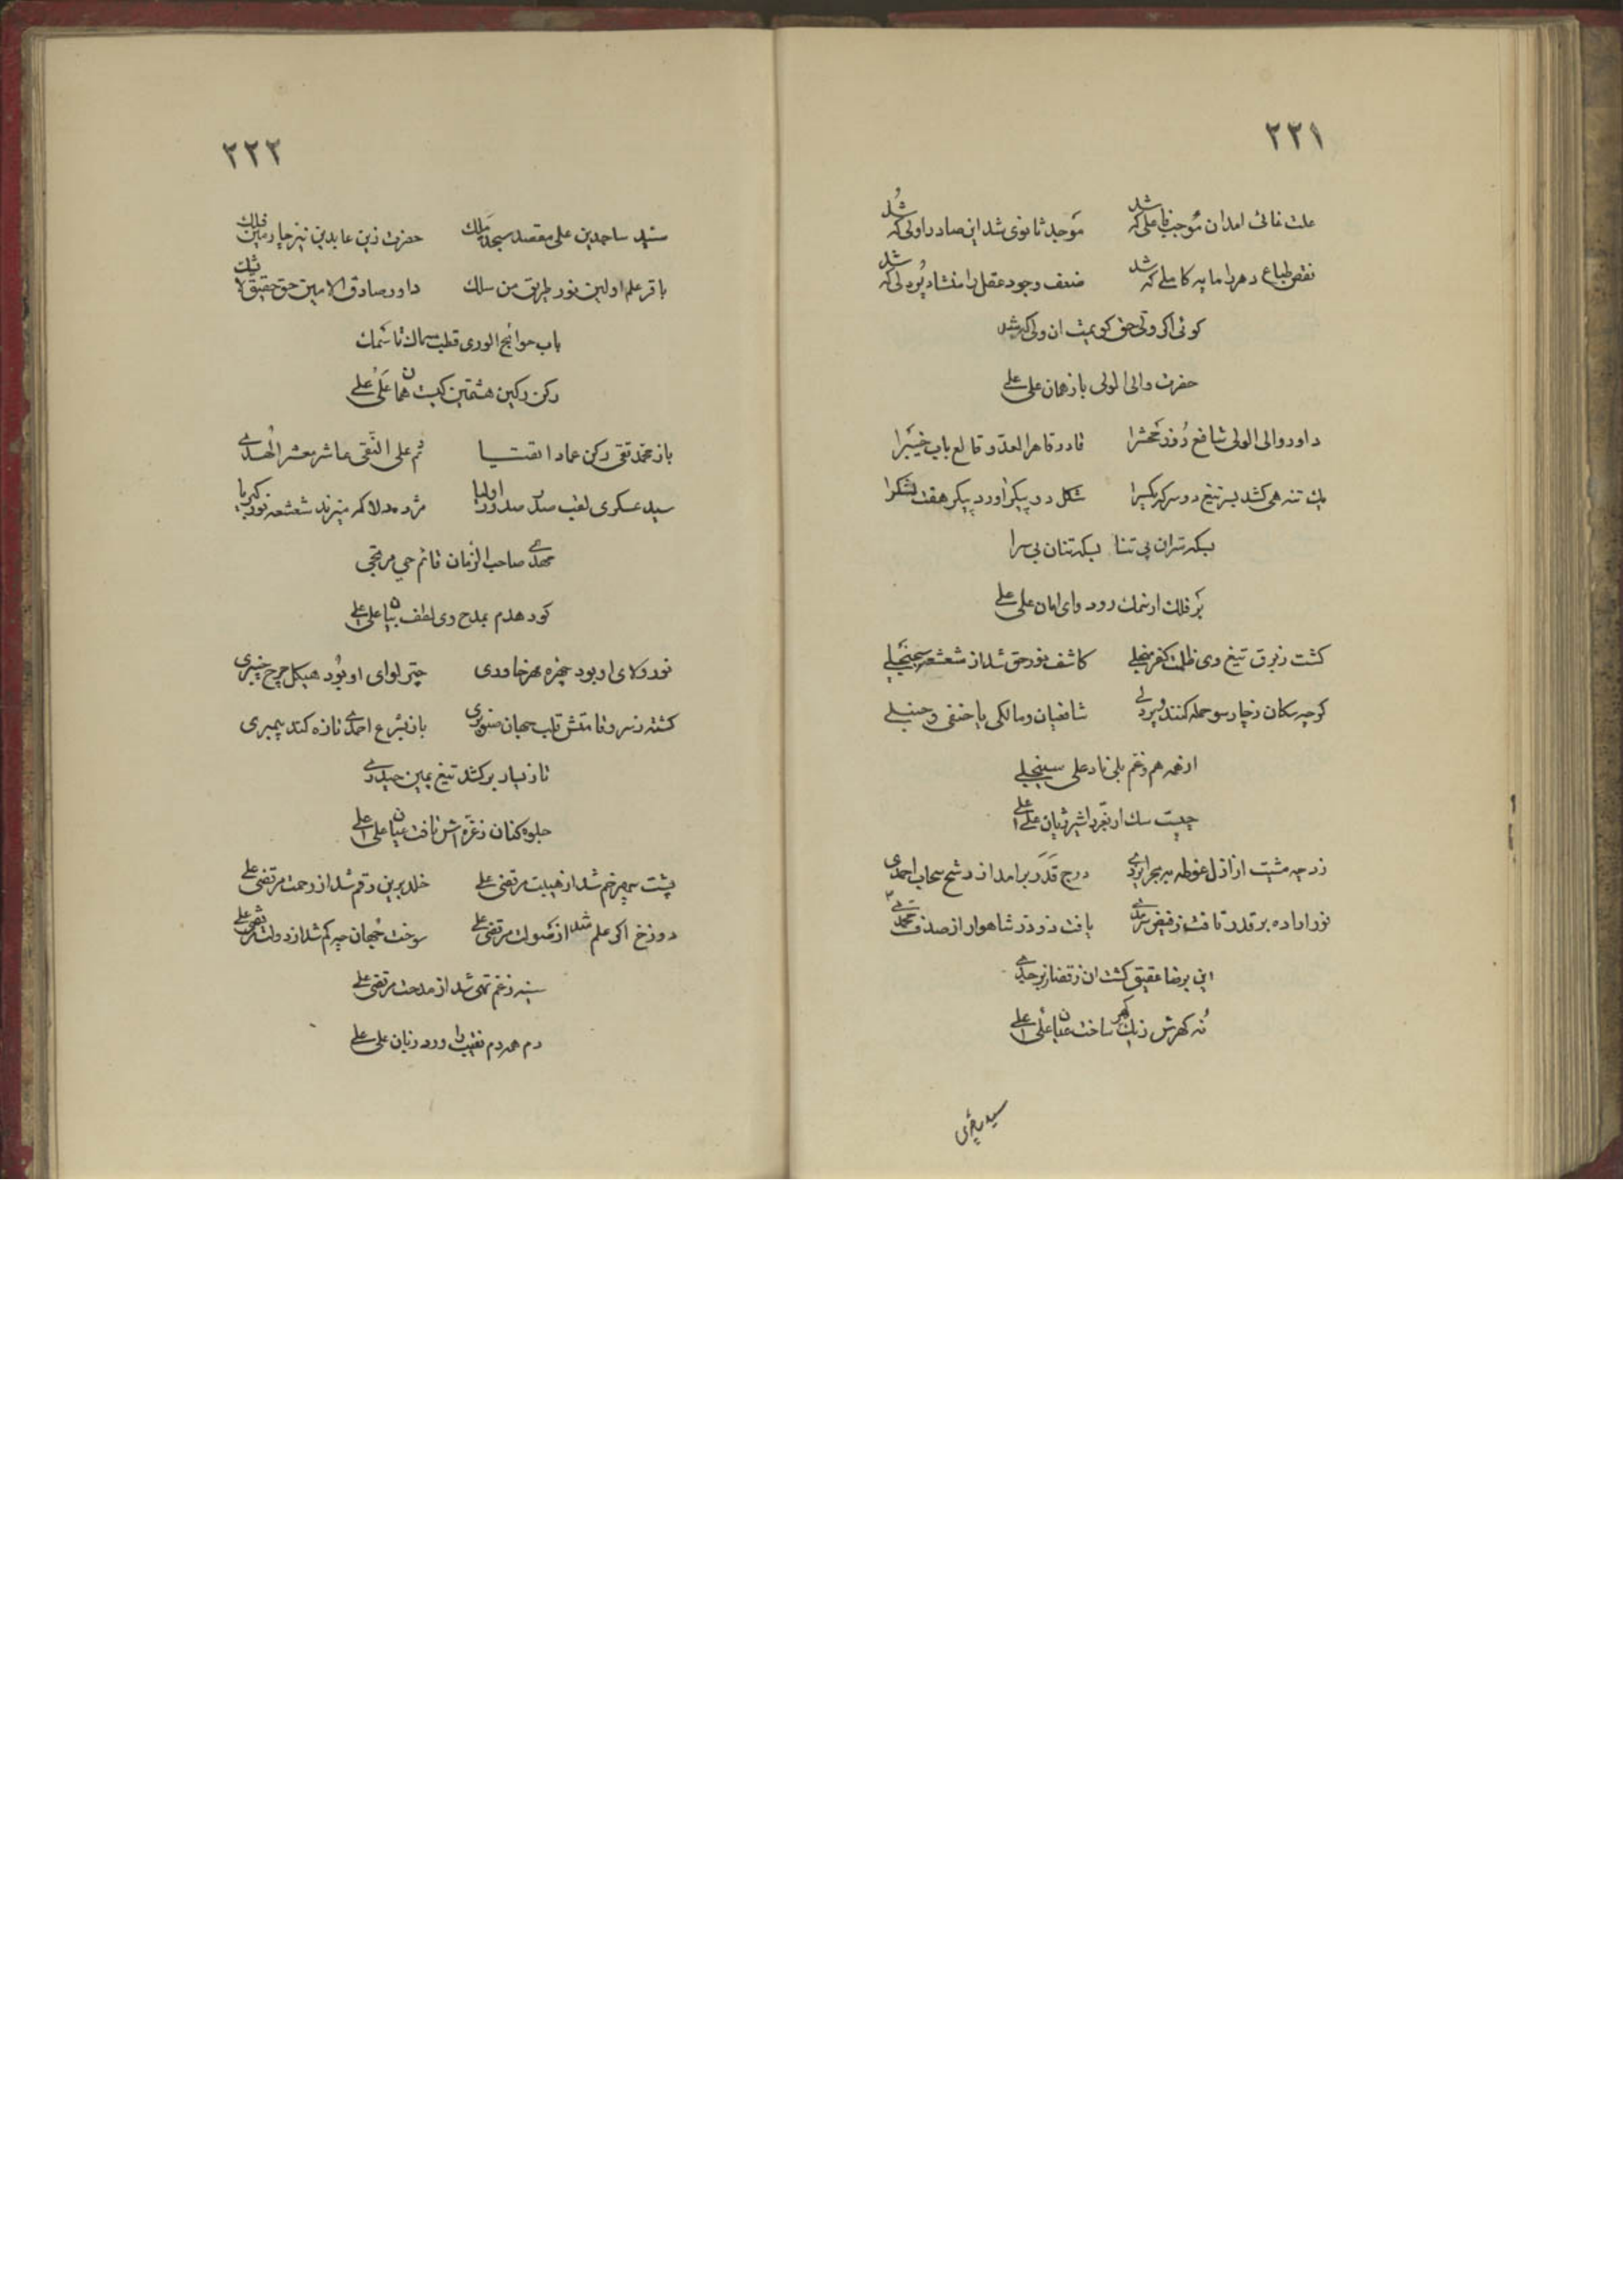 ۲۲۱
علت غائی امد ان موجب فاعلی که شد موجد ثانوی شد این صادر اولی که شد
نقص طباع دهر را مایه کاملی که شد ضعف وجود عقل را منشاد بود لی که شد
کوئی اکر ولی حق کویمت ان ولی که شد
حضرت والی الولی باز همان علی علی
داور والی الولی شافع روز محشرا قادر قاهر العدو قالع باب خیبرا
یک تنه می کشد بسر تیغ دو سر که یکسرا شکل دو پیکر اورد پیکر هفت لشکرا
بسکه سران بی تنا بسکه تنان بی سرا
بر فلک از سمک رود وای امان علی علی
کشت ز برق تیغ وی ظلمت کفر منجلی کاشف نور حق شد از شعشعه سجنجلی
کرچه سکان ز چار سو حمله کنند و پر دلی شافعیان و مالکی یا حنفی و حنبلی
از همه هم و غم بلی ناد علی سینجلی
چیست سک ار بغرد شیر ژیان علی علی
زد چه مشیت از ازل غوطه ببحر ایزدی درج قدر برامد از رشح سحاب احمدی
نور اراده بر قدر تافت ز فیض سرمدی یافت دو در شاهوار از صدف محمدی
این برضا عقیق کشت ان ز قضا زبرجدی
نه کهرش ز یک کهر ساخت عیان علی علی
۲۲۲
سید ساجدین علی مقصد سجده ملک حضرت زین عابدین نیز چارمین فلک
باقر علم اولین نور طریق من سلک داور صادق الامین حق حقیق لا شک
باب حوائج الوری قطب سماک تا سمک
رکن رکین هشتمین کیست همان علی علی
باز محمد تقی رکن عماد اتقیا ثم علی النقی عاشر معشر الهدی
سید عسکری لقب صدر صدور اولیا مژده دلا که میزند شعشعه نور کبریا
مهدی صاحب الزمان قائم حی مرتجی
کو دهدم بمدح وی لطف بیان علی علی
نور ولای او بود چهره مهر خاوری چتر لوای او بود هیکل چرخ چنبری
کشته ز سرو قامتش قلب جهان صنوبری باز بشرع احمدی تازه کند پیمبری
تا ز یسار برکشد تیغ یمین حیدری
جلوه کنان ز غره اش تافت عیان علی علی
پشت سپهر خم شد از هیبت مرتضی علی خلد برین رقم شد از رحمت مرتضی علی
دوزخ اکر علم شد از صولت مرتضی علی سوخت جهان چه کم شد از دولت مرتضی علی
سینه ز غم تهی شد از مدحت مرتضی علی
دم همه دم نقیب را ورد زبان علی علی